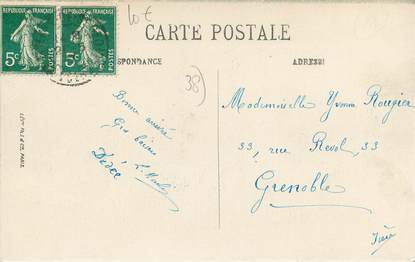 RÉPUBLIQUE FRANÇAISE RÉPUBLIQUE FRANÇAISE
5c POSTES 5c POSTES
10 €
CARTE POSTALE
RESPONDANCE ADRESSE
38)
Bonne année
Gros baisers
Dédée
Mademoiselle Yvonne Rougier
33, rue Revol, 33
Grenoble
Isère